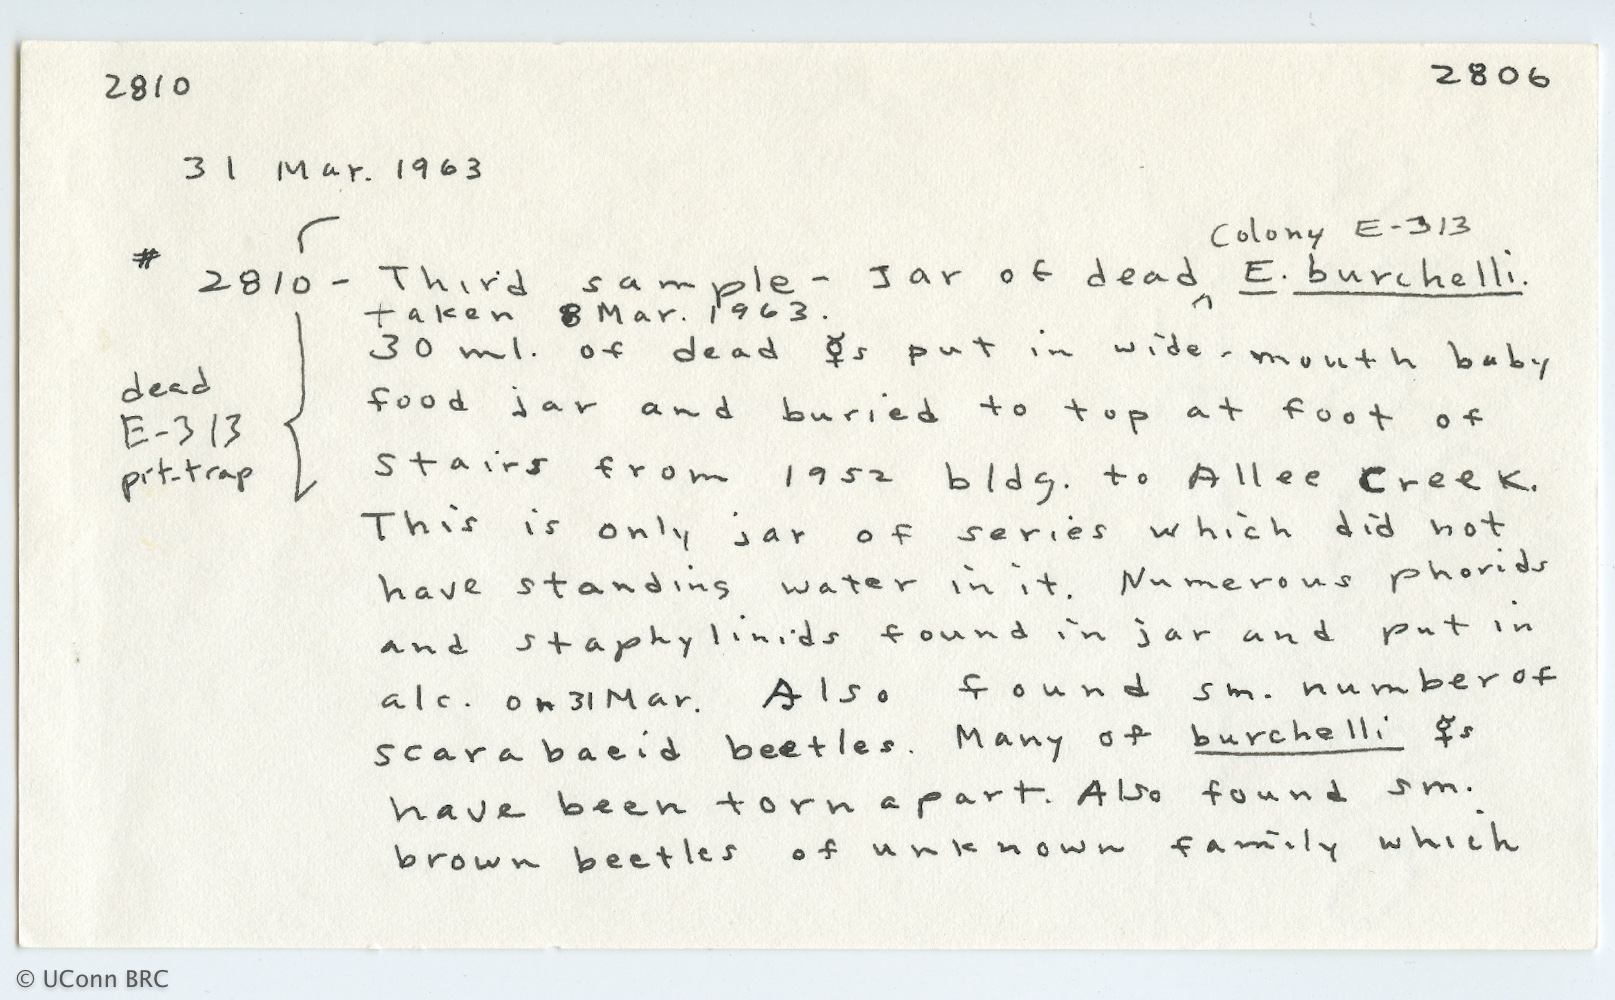 2810 2806
31 Mar. 1963
Colony E-313
# 2810 - Third sample - Jar of dead ^ E. burchelli.
taken 8 Mar. 1963.
30 ml. of dead ☿s put in wide-mouth baby
dead
food jar and buried to top at foot of
E-313
stairs from 1952 bldg. to Allee Creek.
pit-trap
This is only jar of series which did not
have standing water in it. Numerous phorids
and staphylinids found in jar and put in
alc. on 31 Mar. Also found sm. number of
scarabaeid beetles. Many of burchelli ☿s
have been torn apart. Also found sm.
brown beetles of unknown family which
© UConn BRC